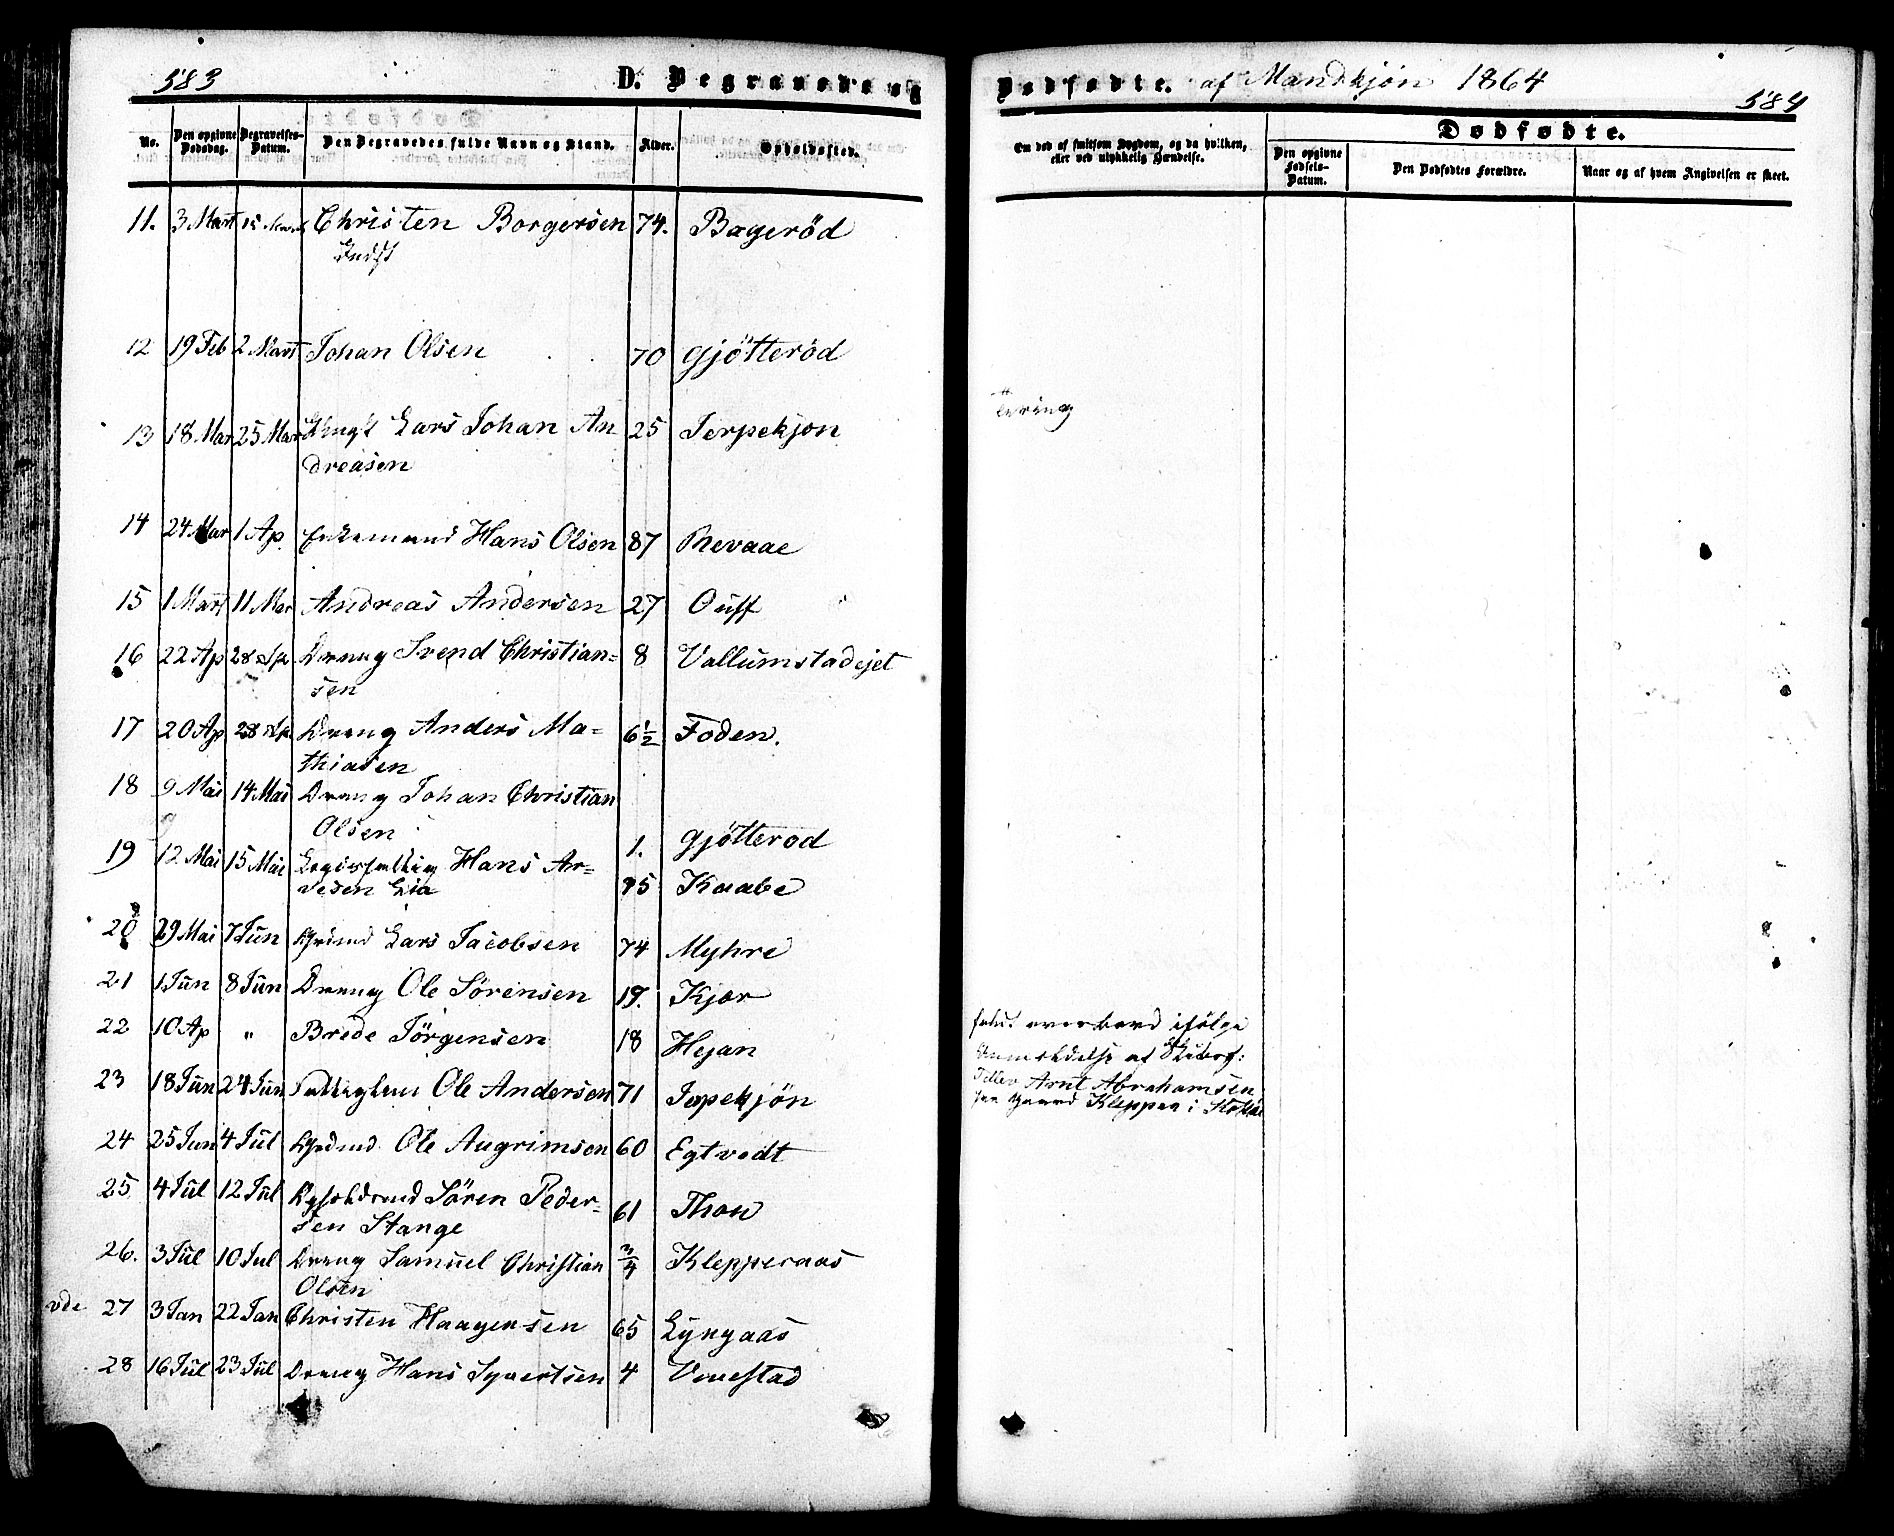 583
D. Begravede og
No.
Den opgivne Dødsdag.
Begravelses-Datum.
Den Begravedes fulde Navn og Stand.
Alder.
Opholdssted.
11. 3 Mart 12 Christen Borgersen 74. Bageröd
Indst
12 19 Feb 2 Mart Johan Olsen 70 Gjötteröd
13 18 Mar 25 Mar Ungk Lars Johan An 25 Jerpekjon
dreasen
14 24 Mar 1 Ap Enkemand Hans Olsen 87 Revaae
15 1 Mart 11 Mar Andreas Andersen 27 Ouff
16 22 Ap 28 Ap Dreng Svend Christian= 8 Vallumstadejet
sen
17 20 Ap 28 Ap Dreng Anders Ma= 6½ Foden.
thiasen
18 9 Mai 14 Mai Dreng Johan Christian
Olsen 1. Gjötterod
19 12 Mai 15 Mai Hans Ar=
vesen Lia 75 Kaabe
20 29 Mai 7 Jun Grdmd Lars Jacobsen 74 Myhre
21 1 Jun 8 Jun Dreng Ole Sörensen 19. Kjær
22 10 Ap " Brede Jörgensen 18 Hejan
23 18 Jun 24 Jun Fattiglem Ole Andersen 71 Jepekjön
24 25 Jun 4 Jul Grdmd Ole Augrimson 60 Egtvedt
25 4 Jul 12 Jul Sören Peder=
sen Stange 61 Thon
26. 3 Jul 10 Jul Dreng Samuel Christian ¾ Klepperaas
Olsen
27 3 Jan 22 Jan Christen Haagensen 65 Lyngaas
28 16 Jul 23 Jul Dreng Hans Syvertsen 4 Vivestad
Dødfødte. af Mandkjön 1864
584
Om død af smitsom Sygdom, og da hvilken,
eller ved ulykkelig Hændelse.
Dødfødte.
Den opgivne Fødsels-Datum.
Den Dødfødtes Forældre.
Naar og af hvem Angivelsen er skeet.
Tæring
faldt overbord ifölge
Anmeldelse af Skibsf:
Arnt Abrahamsen
Kleppan i